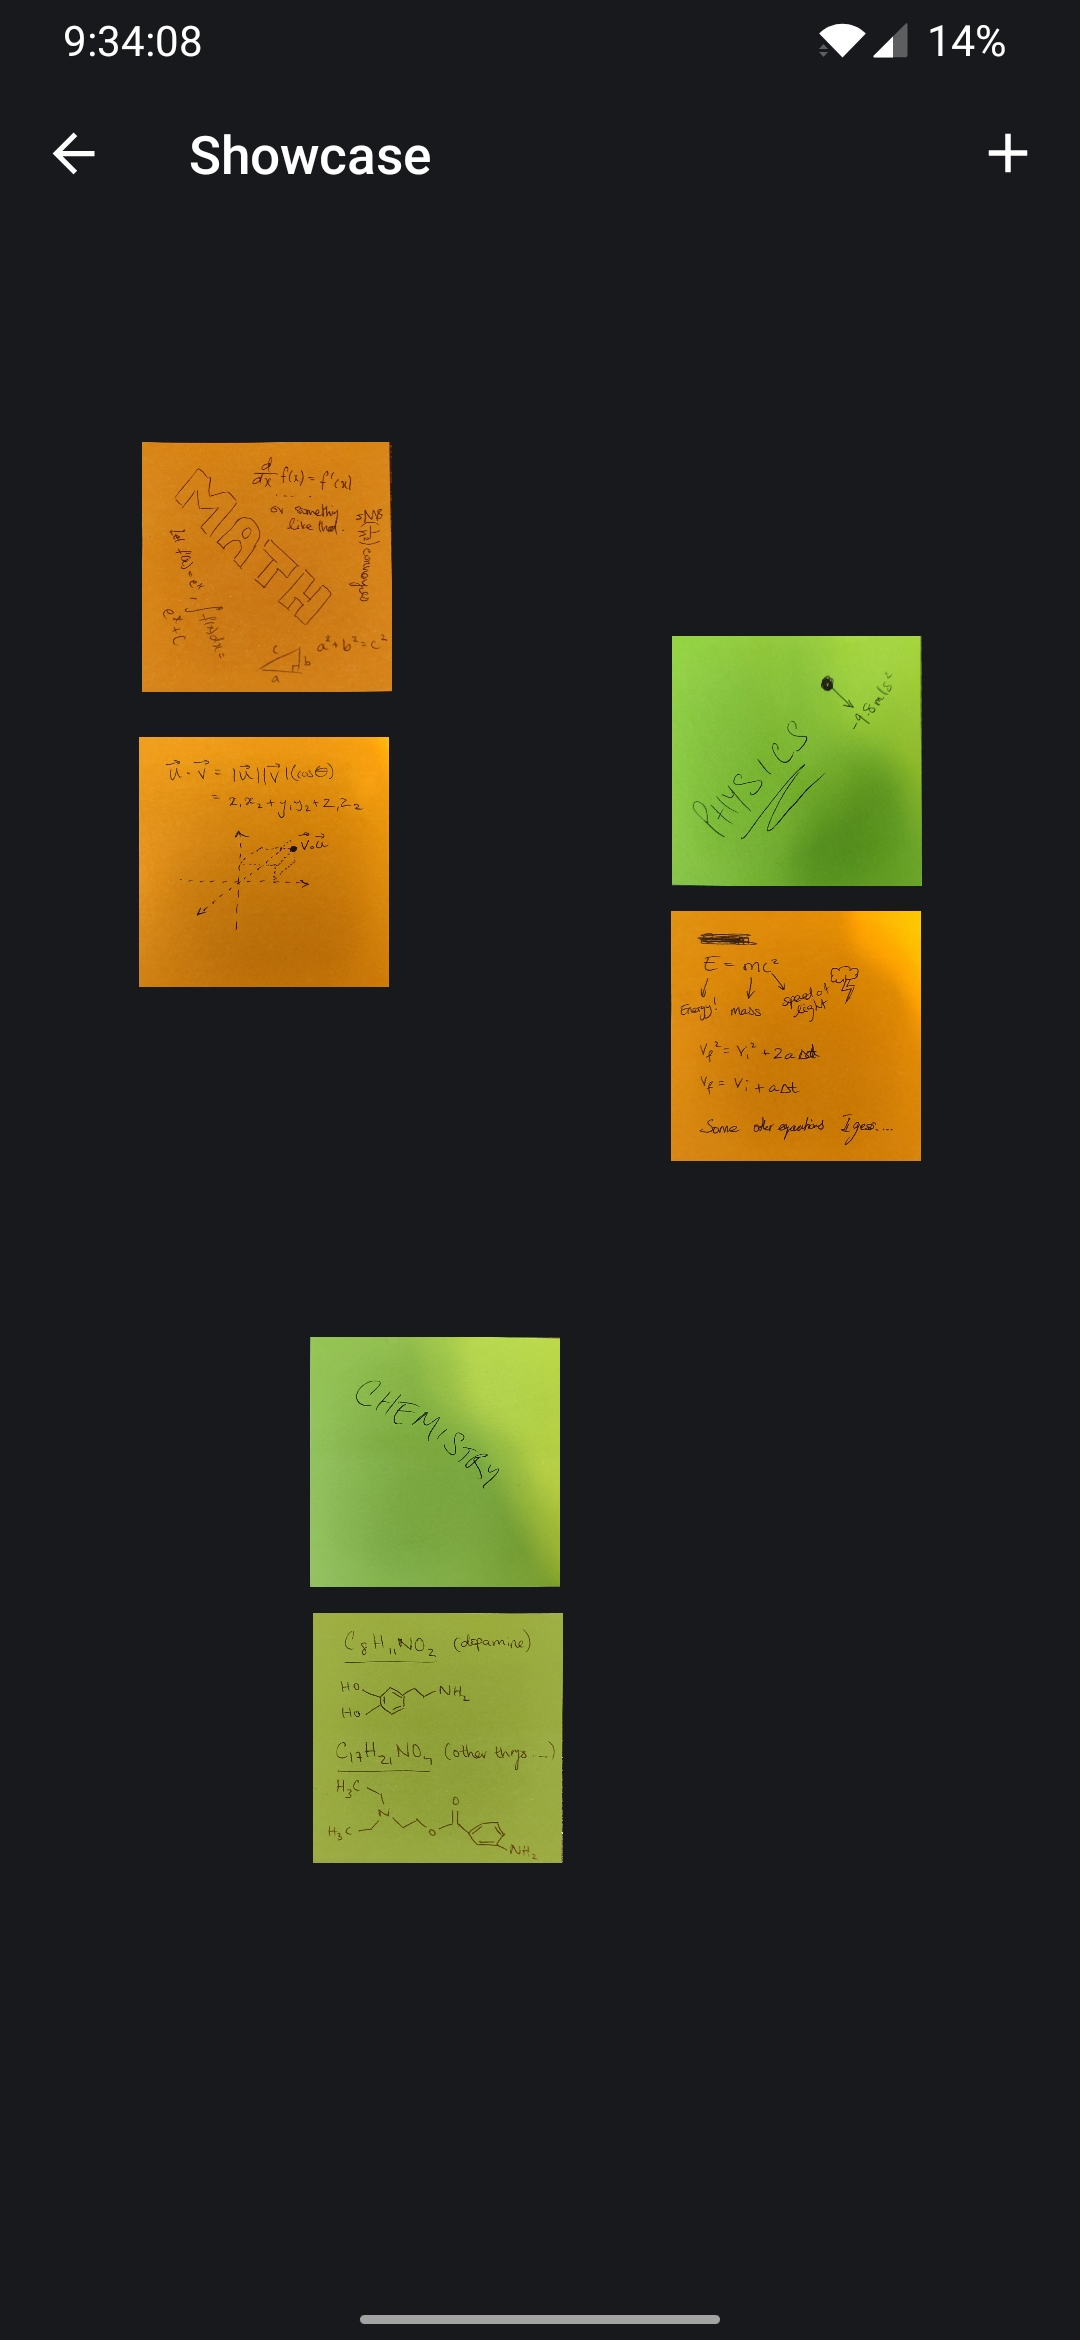 9:34:08
14%
Showcase
MATH
d/dx f(x) = f'(x)
....
or something
like that.
converges
Let f(x) = eˣ, ∫f(x)dx =
eˣ + C
a² + b² = c²
c
b
a
u⃗ · v⃗ = |u⃗||v⃗|(cosθ)
= x₁x₂ + y₁y₂ + z₁z₂
v⃗·u⃗
PHYSICS
-9.8m/s²
E = mc²
Energy! mass speed of
light
Vf² = Vi² + 2a
Vf = Vi + aΔt
Some other equations I guess....
CHEMISTRY
C₈H₁₁NO₂ (dopamine)
HO
NH₂
HO
C₁₇H₂₁NO₄ (other thngs ...)
H₃C
O
N
H₃C
O
NH₂